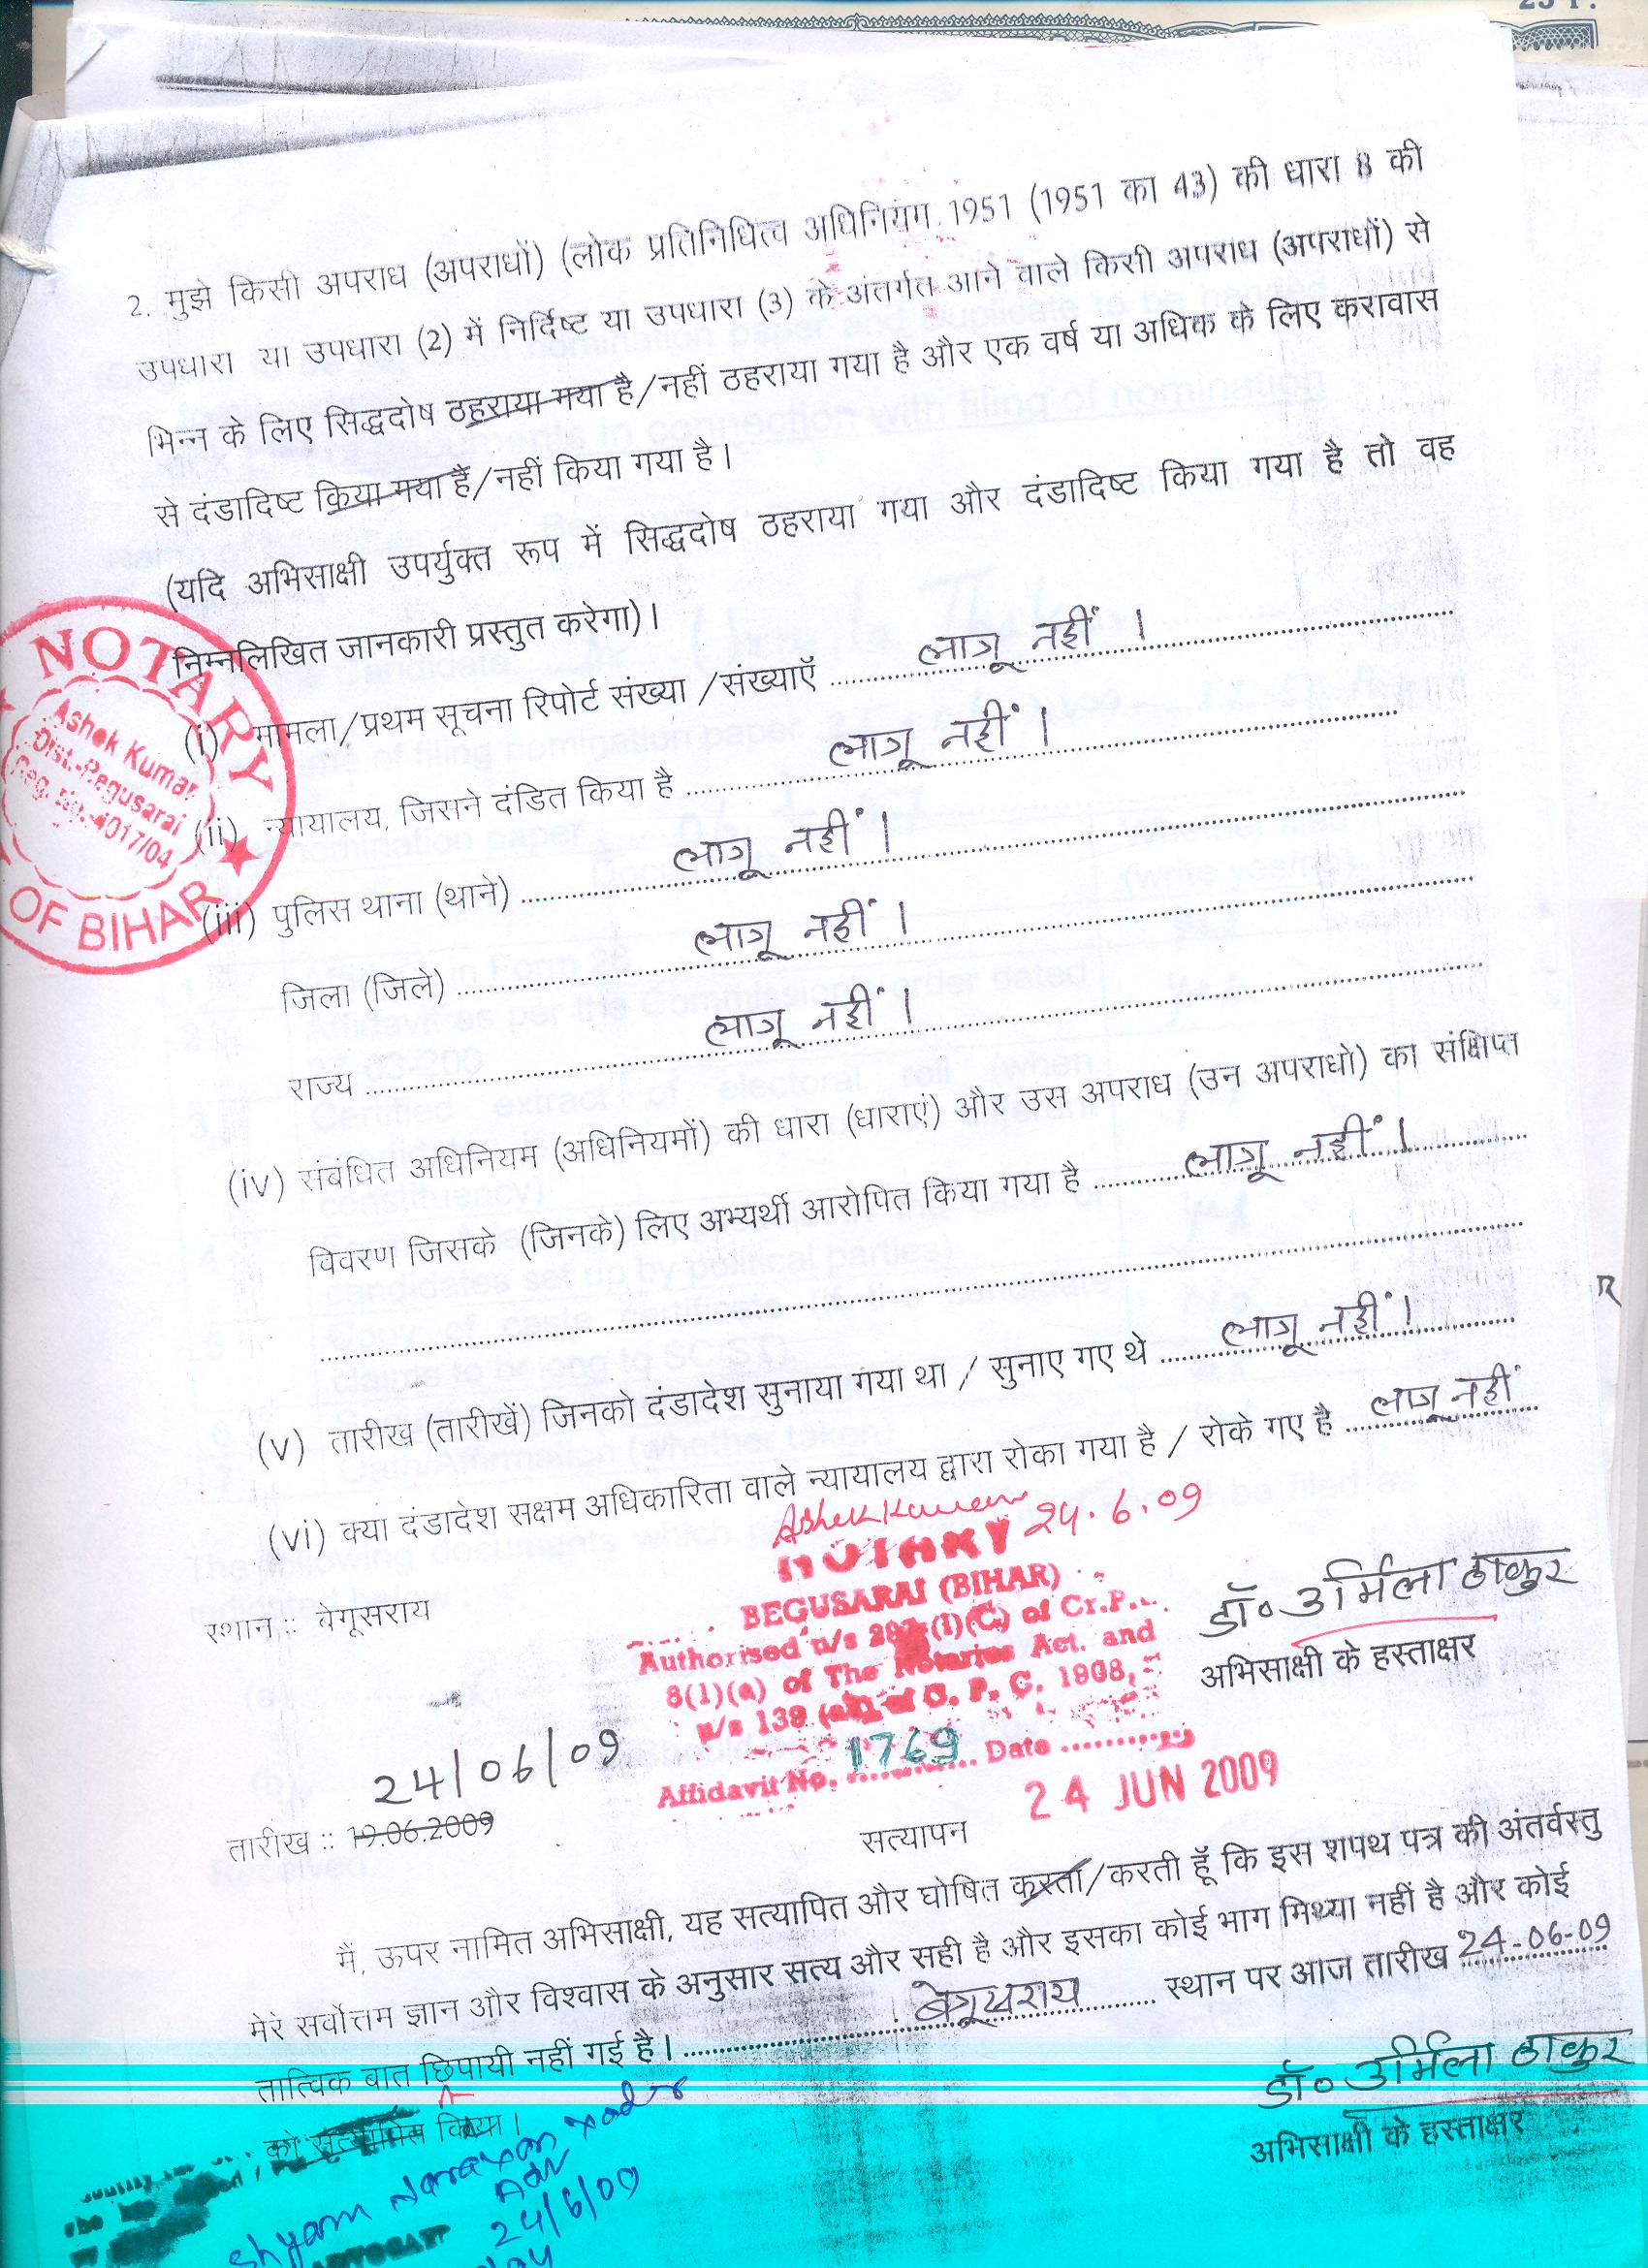 2. मुझे किसी अपराध (अपराधों) (लोक प्रतिनिधित्व अधिनियम, 1951 (1951 का 43) की धारा 8 की
उपधारा या उपधारा (2) में निर्दिष्ट या उपधारा (3) के अंतर्गत आने वाले किसी अपराध (अपराधों) से
भिन्न के लिए सिद्धदोष ठहराया गया है/नहीं ठहराया गया है और एक वर्ष या अधिक के लिए करावास
से दंडादिष्ट किया गया है/नहीं किया गया है।
(यदि अभिसाक्षी उपर्युक्त रूप में सिद्धदोष ठहराया गया और दंडादिष्ट किया गया है तो वह
निम्नलिखित जानकारी प्रस्तुत करेगा)।
(i) मामला/प्रथम सूचना रिपोर्ट संख्या /संख्याएँ लागू नहीं।
(ii) न्यायालय, जिसने दंडित किया है लागू नहीं।
(iii) पुलिस थाना (थाने) लागू नहीं।
जिला (जिले) लागू नहीं।
राज्य लागू नहीं।
(iv) संबंधित अधिनियम (अधिनियमों) की धारा (धाराएं) और उस अपराध (उन अपराधो) का संक्षिप्त
विवरण जिसके (जिनके) लिए अभ्यर्थी आरोपित किया गया है लागू नहीं।
(v) तारीख (तारीखें) जिनको दंडादेश सुनाया गया था / सुनाए गए थे लागू नहीं।
(vi) क्या दंडादेश सक्षम अधिकारिता वाले न्यायालय द्वारा रोका गया है / रोके गए है लागू नहीं
NOTARY
Ashok Kumar
Dist.-Begusarai
Reg. No.-4017/04
OF BIHAR
Ashok Kumar 24.6.09
NOTARY
BEGUSARAI (BIHAR)
Authorised u/s 297 (1)(C) of Cr.P.
8(1)(a) of The Notaries Act. and
u/s 139 of C. P. C. 1908,
Affidavit No. 1769 Date
24 JUN 2009
स्थान :: बेगूसराय
डॉ० उर्मिला ठाकुर
अभिसाक्षी के हस्ताक्षर
24/06/09
तारीख :: 19.06.2009
सत्यापन
मैं, ऊपर नामित अभिसाक्षी, यह सत्यापित और घोषित करता/करती हूँ कि इस शपथ पत्र की अंतर्वस्तु
मेरे सर्वोत्तम ज्ञान और विश्वास के अनुसार सत्य और सही है और इसका कोई भाग मिथ्या नहीं है और कोई
तात्विक बात छिपायी नहीं गई है। बेगूसराय स्थान पर आज तारीख 24-06-09
को सत्यापित किया।
डॉ० उर्मिला ठाकुर
अभिसाक्षी के हस्ताक्षर
Shyam Narayan
Adv
24/6/09